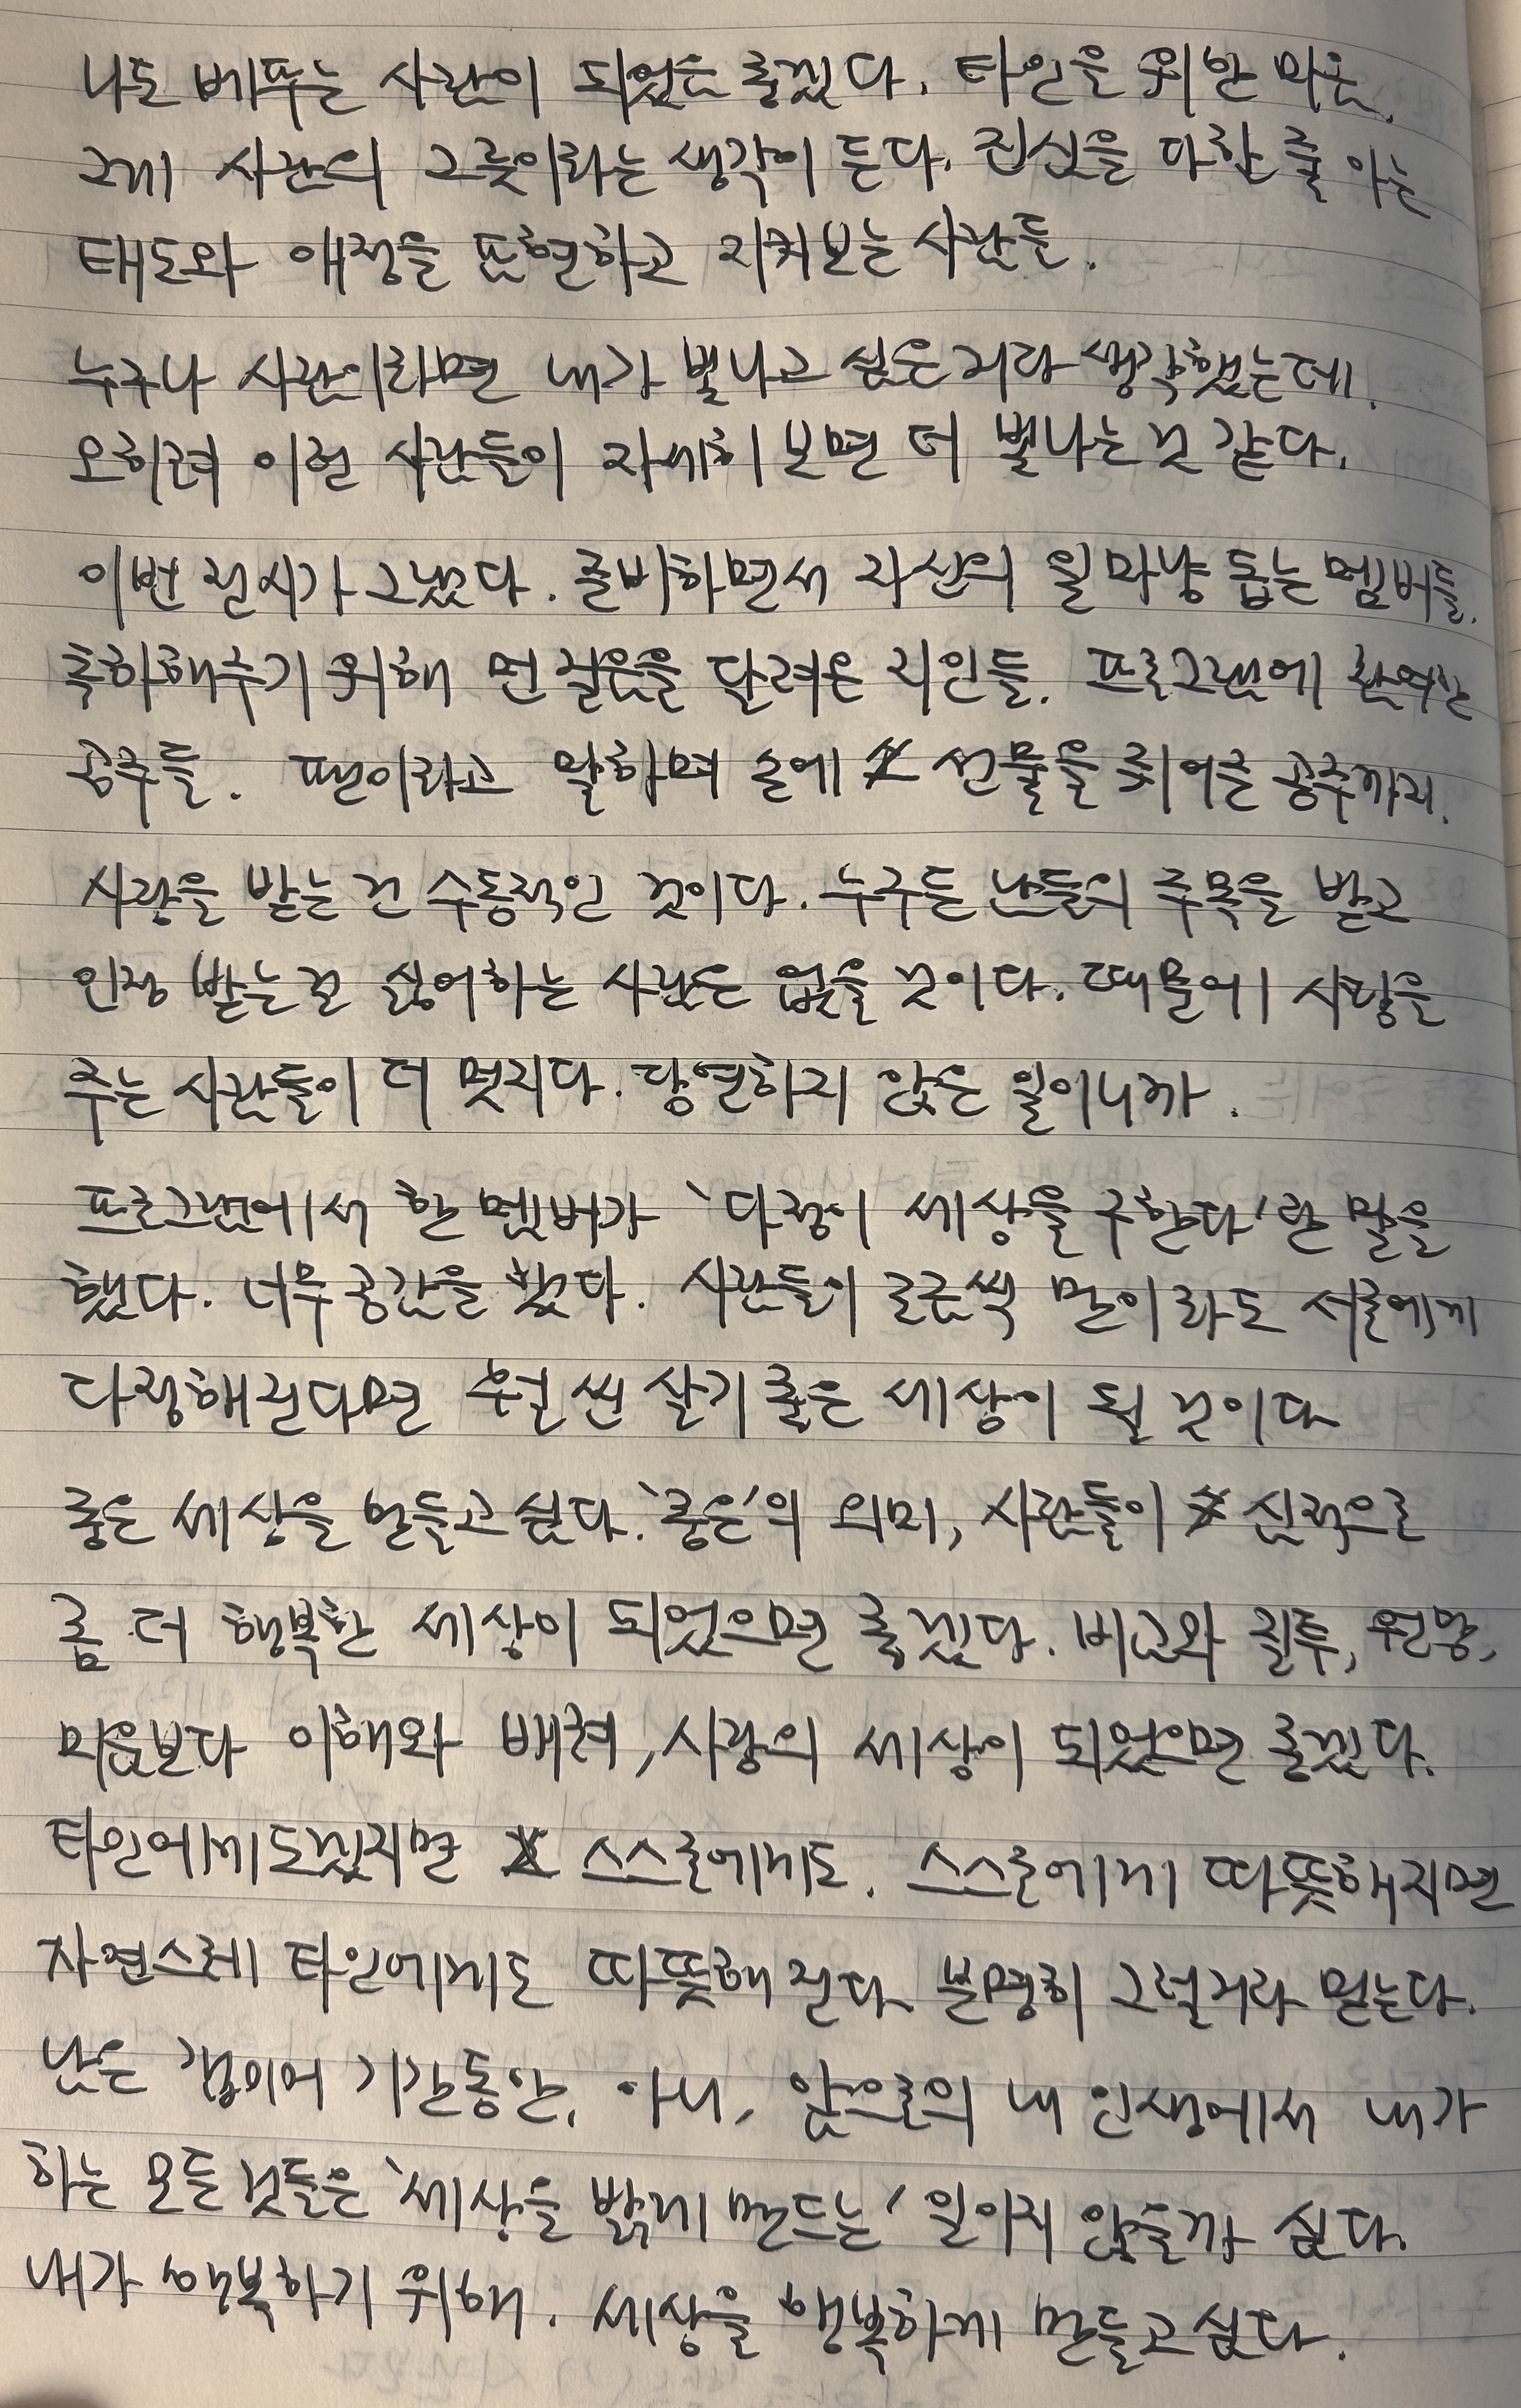 나도 베푸는 사람이 되었음 좋겠다. 타인을 위한 마음.
그게 사람의 그릇이라는 생각이 든다. 진심을 다할 줄 아는
태도와 애정을 표현하고 지켜보는 사람들.
누구나 사람이라면 내가 빛나고 싶은거라 생각했는데.
오히려 이런 사람들이 자세히 보면 더 빛나는 것 같다.
이번 전시가 그랬다. 준비하면서 자신의 일 마냥 돕는 멤버들.
축하해주기 위해 먼 걸음을 달려온 지인들. 프로그램에 참여한
공주들. 팬이라고 말하며 손에 선물을 쥐어준 공주까지.
사랑을 받는 건 수동적인 것이다. 누구든 남들의 주목을 받고
인정 받는걸 싫어하는 사람은 없을 것이다. 때문에 사랑을
주는 사람들이 더 멋지다. 당연하지 않은 일이니까.
프로그램에서 한 멤버가 '다정이 세상을 구한다'란 말을
했다. 너무 공감을 했다. 사람들이 조금씩 만이라도 서로에게
다정해진다면 훨씬 살기 좋은 세상이 될 것이다
좋은 세상을 만들고 싶다. '좋은'의 의미, 사람들이 심적으로
좀 더 행복한 세상이 되었으면 좋겠다. 비교와 질투, 원망,
미움보다 이해와 배려, 사랑의 세상이 되었으면 좋겠다.
타인에게도겠지만 스스로에게도. 스스로에게 따뜻해지면
자연스레 타인에게도 따뜻해진다. 분명히 그럴거라 믿는다.
남은 갭이어 기간동안, 아니, 앞으로의 내 인생에서 내가
하는 모든 것들은 '세상을 밝게 만드는' 일이지 않을까 싶다.
내가 행복하기 위해. 세상을 행복하게 만들고 싶다.